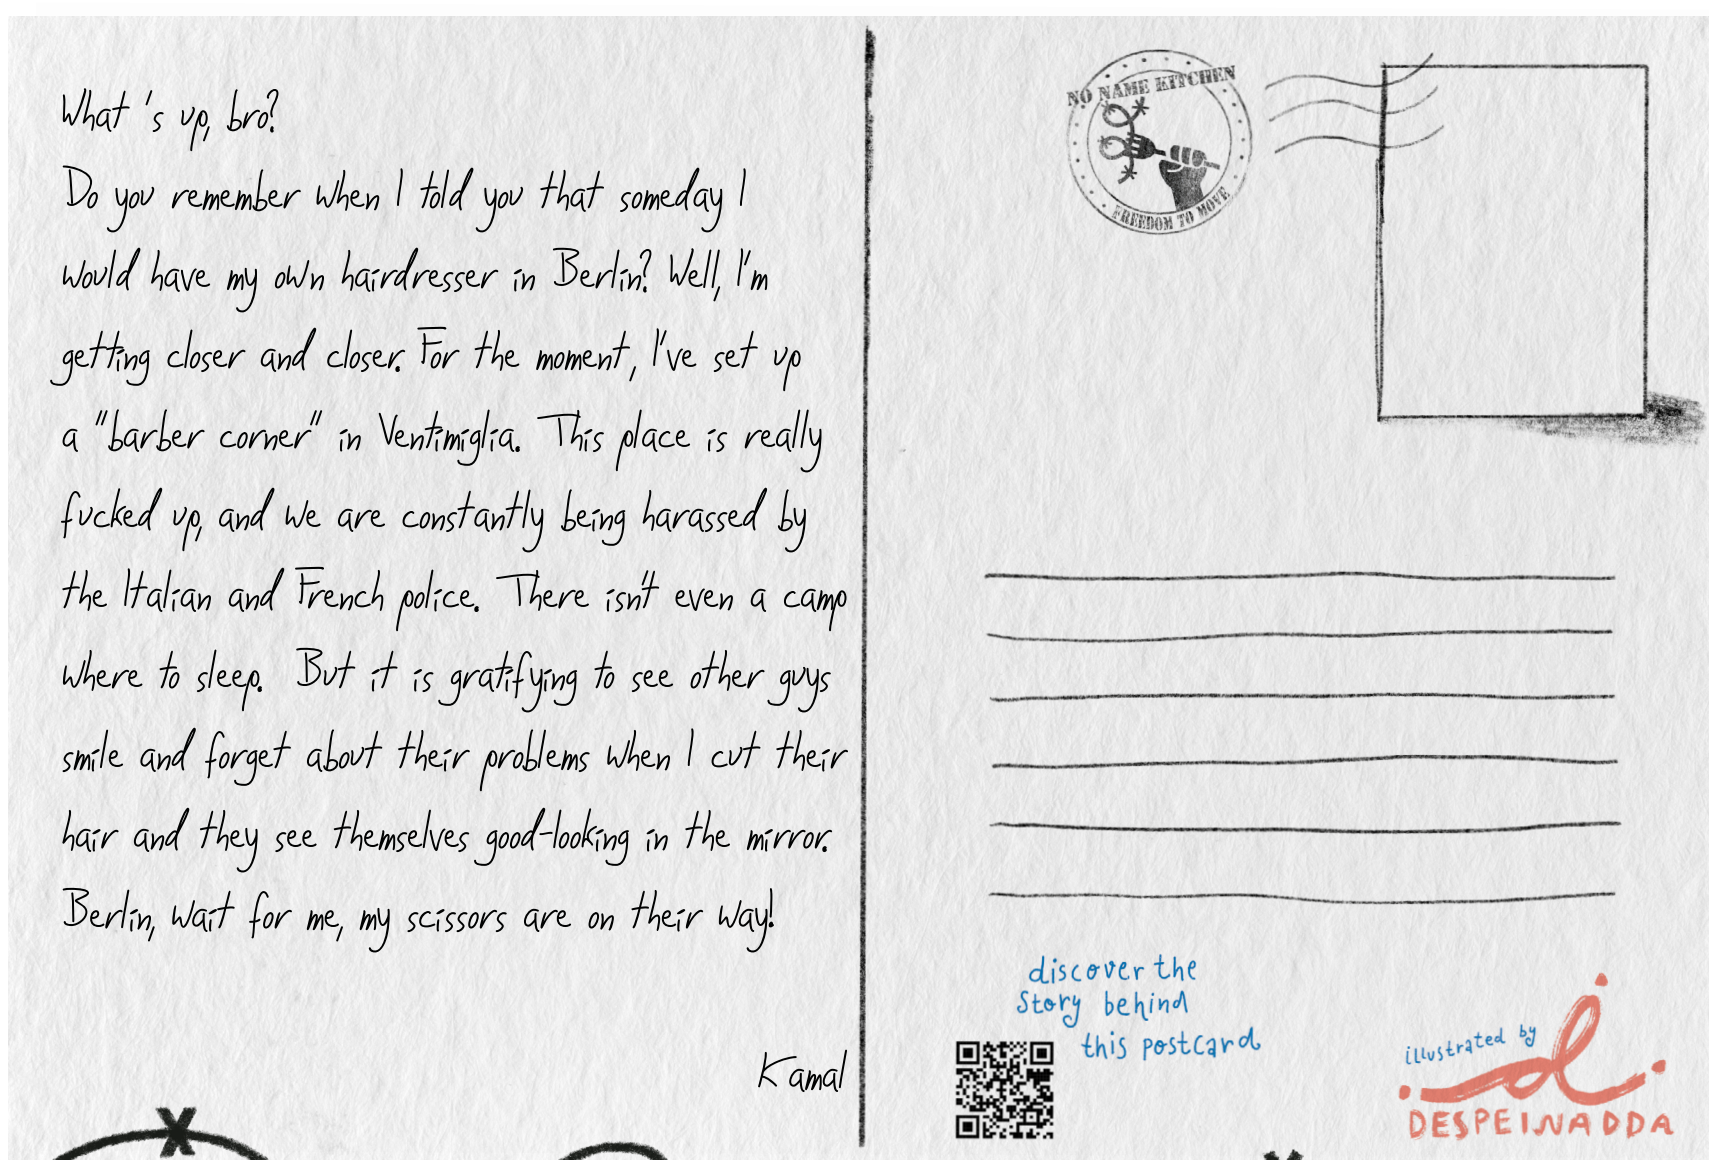 What 's up, bro?
Do you remember when I told you that someday I
would have my own hairdresser in Berlin? Well, I'm
getting closer and closer. For the moment, I've set up
a "barber corner" in Ventimiglia. This place is really
fucked up, and we are constantly being harassed by
the Italian and French police. There isn't even a camp
where to sleep. But it is gratifying to see other guys
smile and forget about their problems when I cut their
hair and they see themselves good-looking in the mirror.
Berlin, wait for me, my scissors are on their way!
Kamal
NO NAME KITCHEN
FREEDOM TO MOVE
discover the
story behind
this postcard
illustrated by
d
DESPEINADDA